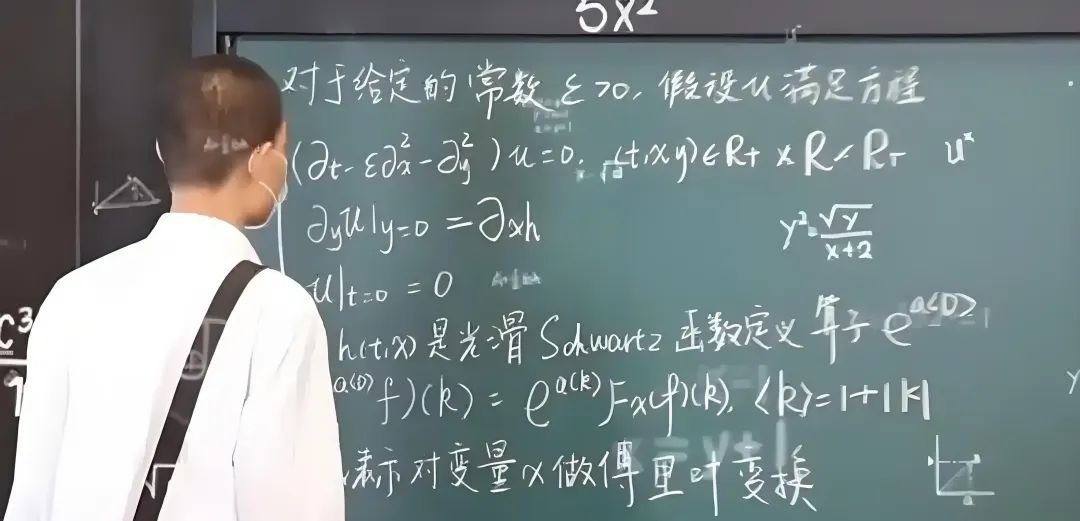 5x²
对于给定的常数 ε>0, 假设u满足方程
(∂t-ε∂²x-∂²y)u=0, (t,x,y)∈R+×R×R+ uˣ
∂yu|y=0 = ∂xh
y²=√y/(x+2)
u|t=0 = 0
h(t,x)是光滑Schwartz函数定义算子 e^a⟨D⟩
a⟨D⟩ f)(k) = e^a⟨k⟩ Fx(f)(k), ⟨k⟩=1+|k|
x=y+1
表示对变量x做傅里叶变换
C³
1